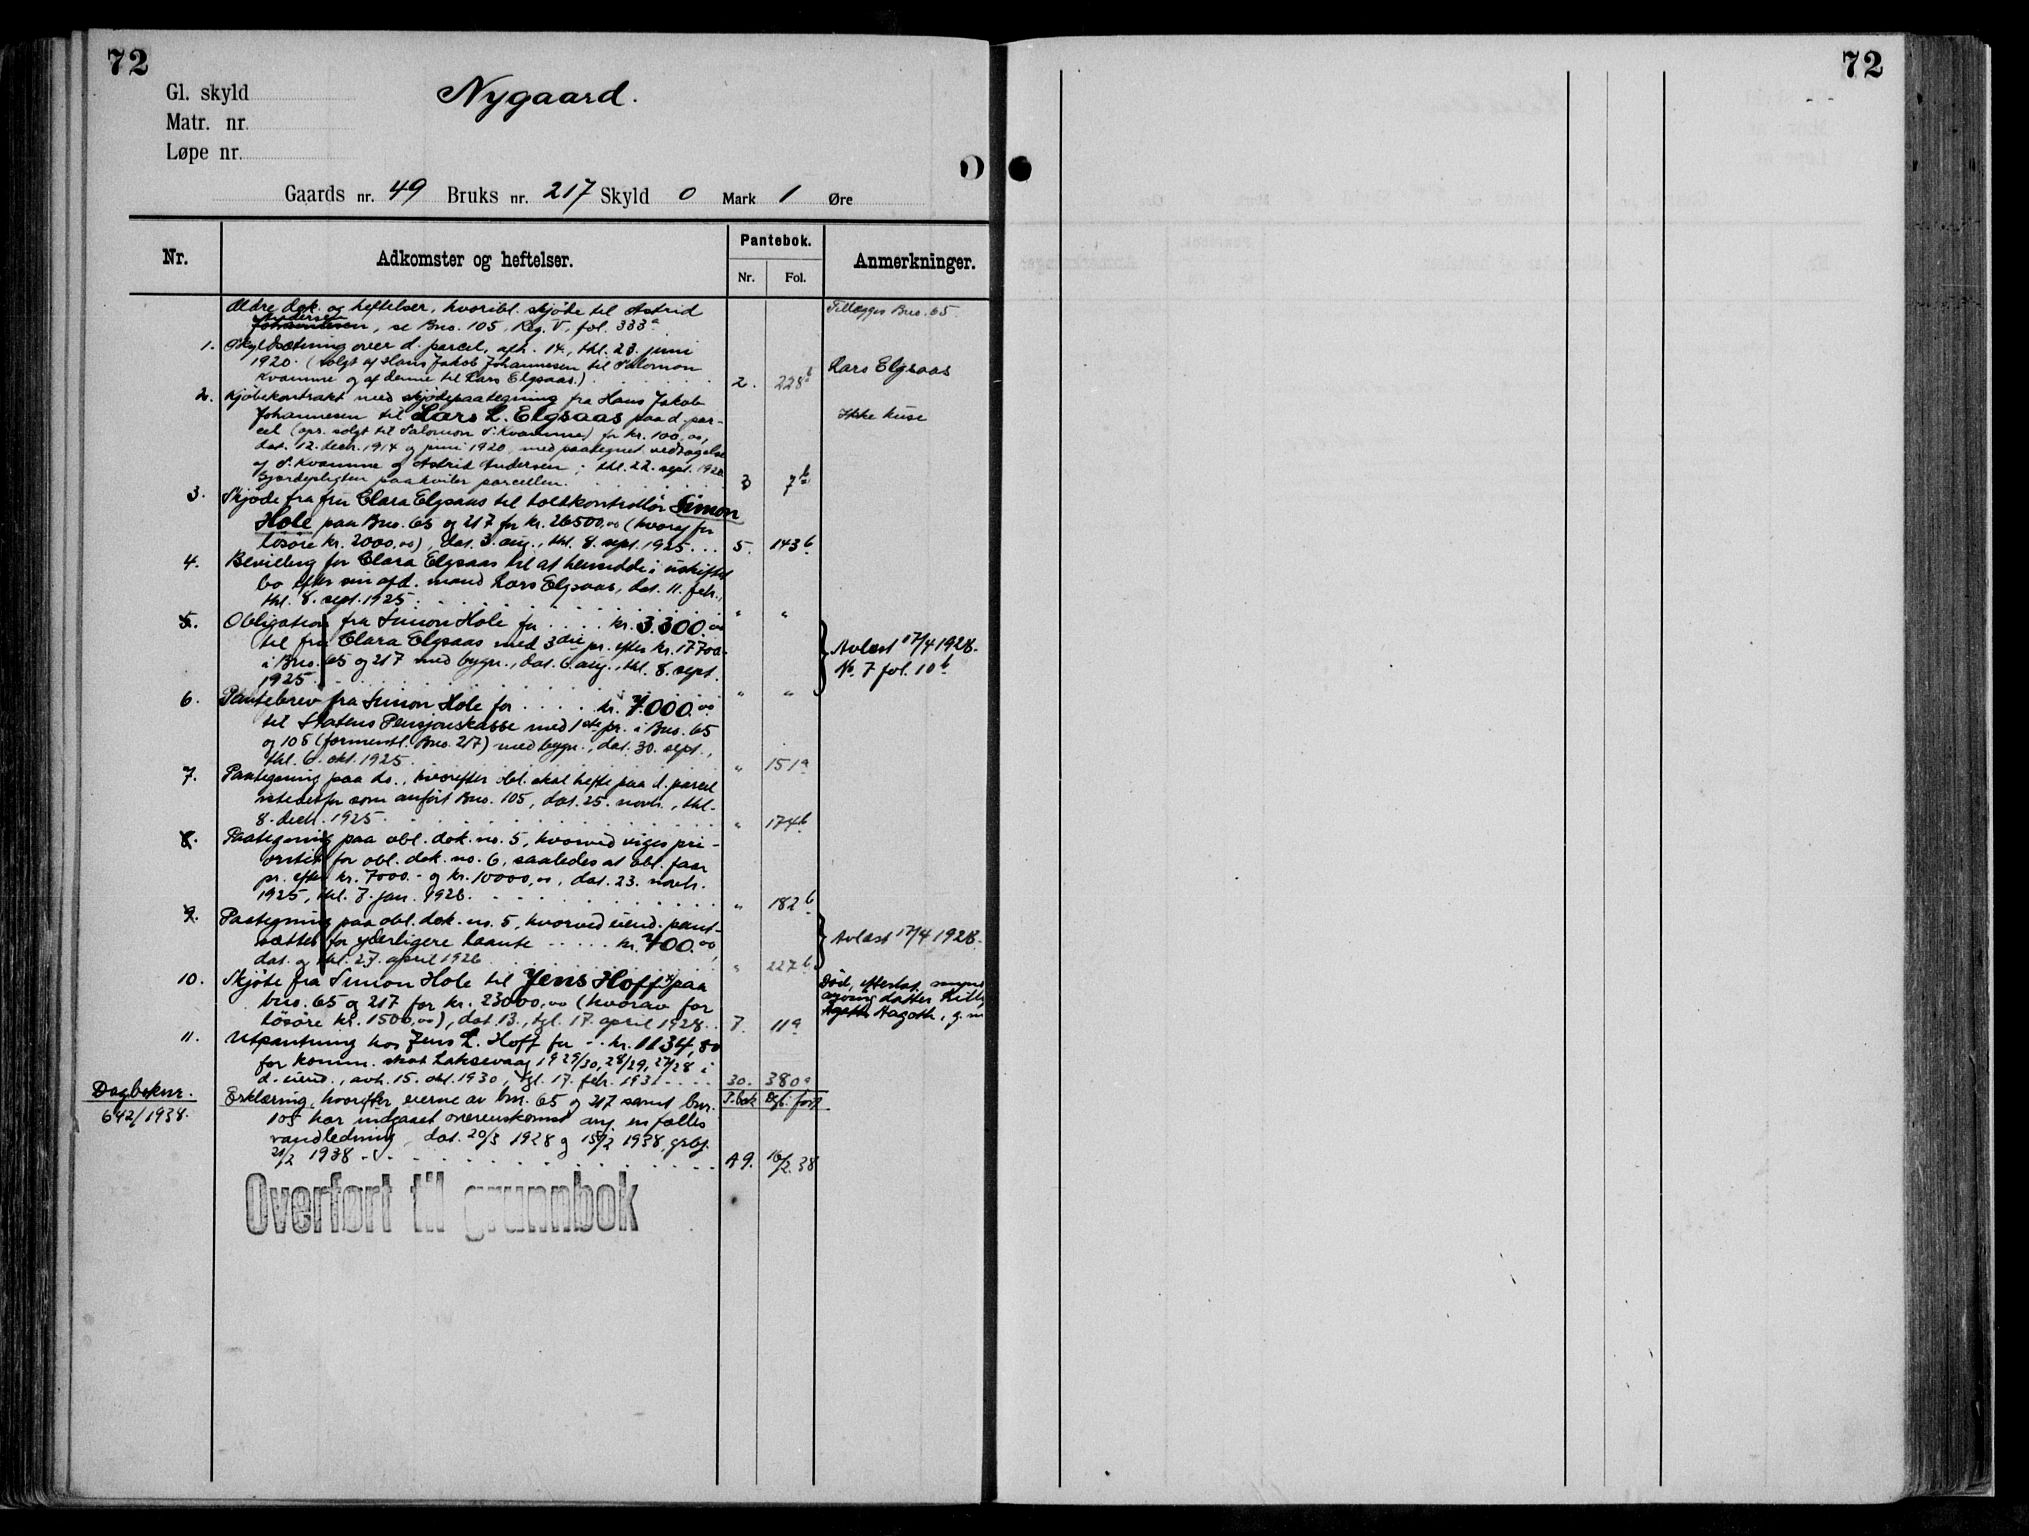 72
Gl. skyld
Matr. nr.
Løpe nr.
Nygaard.
Gaards nr. 49 Bruks nr. 217 Skyld 0 Mark 1 Øre
Nr. Adkomster og heftelser. Pantebok. Anmerkninger.
Nr. Fol.
Ældre dok. og heftelser, hvoribl. skjøte til Astrid Tillægges Bno. 65
Andersen
Johannesen, se Bno. 105, Reg. V, fol. 333a
1. Skyldsætning over d. parcel, afh. 14., thl. 23. juni
1920. (Solgt af Hans Jakob Johannesen til Salomon
Kvamme og af denne til Lars Elgsaas.) 2. 228b Lars Elgsaas
2. Kjøbekontrakt med skjødepaategning fra Hans Jakob
Johannesen til Lars L. Elgsaas paa d. par- Ikke huse
cel (opr. solgt til Salomon S. Kvamme) for kr. 100,00,
dat. 12. decbr. 1914 og juni 1920, med paategnet vedtagelse
af S. Kvamme og Astrid Andersen; thl. 22. sept. 1920
Gjærdepligten paahviler parcellen. 3 7b
3. Skjøde fra fru Clara Elgsaas til toldkontrollør Simon
Hole paa Bno. 65 og 217 for kr. 26500,00 (hvoraf for
løsøre kr. 2000,00), dat. 3. aug., thl. 8. sept. 1925... 5. 143b
4. Bevilling for Clara Elgsaas til at hensidde i uskiftet
bo efter sin afd. mand Lars Elgsaas, dat. 11. febr.,
thl. 8. sept. 1925. " "
5. Obligation fra Simon Hole for .... kr. 3.300.00
til fru Clara Elgsaas med 3die pr. efter kr. 17700.
i Bno. 65 og 217 med bygn., dat. 6. aug., thl. 8. sept.
1925. " "
Avlæst 17/4 1928.
No. 7 fol. 10b
6. Pantebrev fra Simon Hole for .... kr. 7.000.00
til Statens Pensjonskasse med 1ste pr. i Bno. 65
og 105 (formentl. Bno. 217) med bygn., dat. 30. sept.,
thl. 6. okt. 1925. " 151a
7. Paategning paa do., hvorefter obl. skal hefte paa d. parcel
istedetfor som anført Bno. 105, dat. 25. novbr., thl.
8. decbr. 1925. " 174b
8. Paategning paa obl. dok. no. 5, hvorved viges pri-
oritet for obl. dok. no. 6, saaledes at obl. faar
pr. efter kr. 7000.- og kr. 10000,00, dat. 23. novbr.
1925, thl. 7. jan. 1926. " 182b
9. Paategning paa obl. dok. no. 5, hvorved eiend. pant-
sættes for yderligere laante ..... kr. 400.00,
dat. og thl. 27. april 1926 " 227b
Avlæst 17/4 1928.
10. Skjøte fra Simon Hole til Jens Hoff x) paa
bno. 65 og 217 for kr. 23000,00 (hvorav for
løsøre kr. 1500,00), dat. 13., tgl. 17. april 1928.. 7. 11a
Død, efterlat.
datter
Agathe Hagoth, g. m
11. Utpantning hos Jens L. Hoff for .. kr. 1134,80
for komm. skat Laksevaag 1929/30, 28/29, 27/28 i
d. eiend., avh. 15. okt. 1930, tgl. 17. febr. 1931.... 30. 380a
Dagboknr.
642/1938.
Erklæring, hvorefter eierne av bnr. 65 og 217 samt bnr. P.bok Dgb. ført
105 har indgaaet overenskomst ang. en fælles
vandledning, dat. 20/3 1928 og 15/2 1938, grbj.
21/2 1938 A9. 16/2. 38
Overført til grunnbok
72